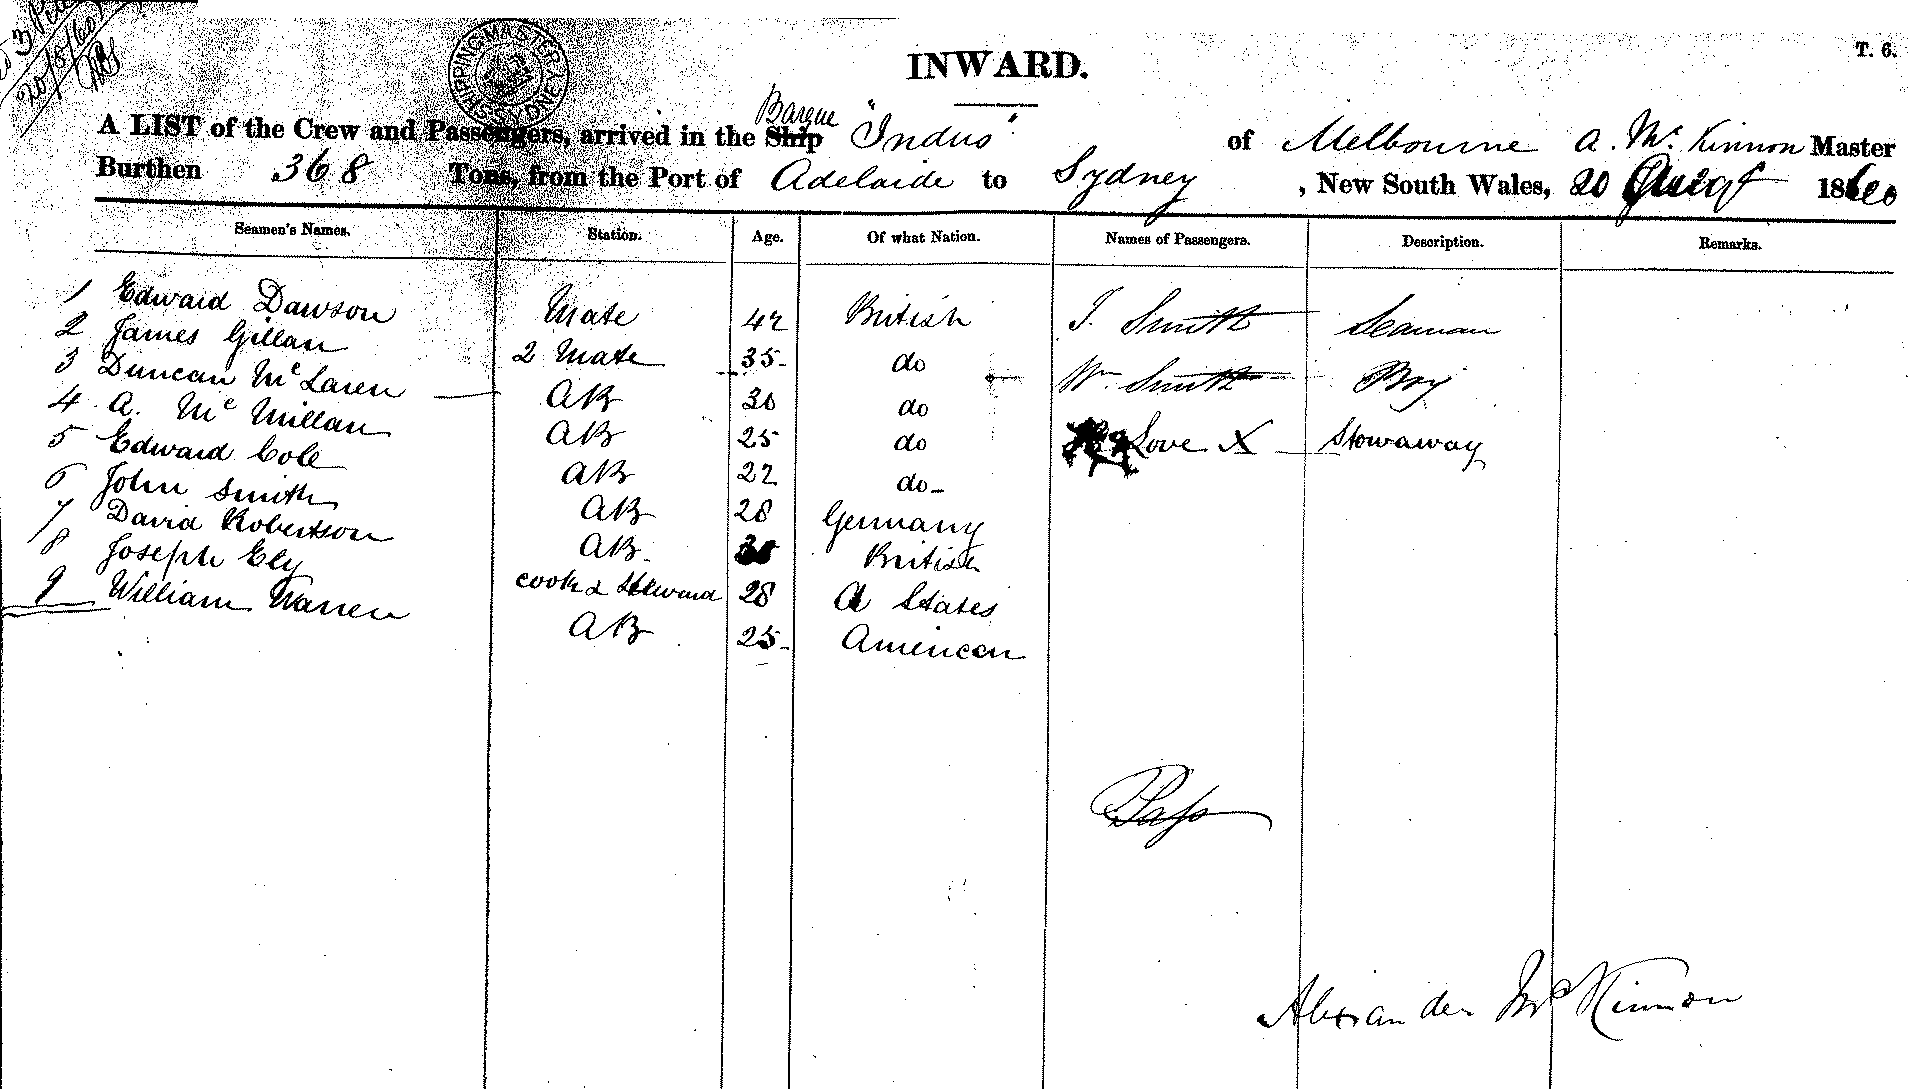 20/8/60
SHIPPING MASTER SYDNEY
INWARD.
T. 6.
Barque
A LIST of the Crew and Passengers, arrived in the Ship "Indus" of Melbourne A. McKinnon Master
Burthen 368 Tons, from the Port of Adelaide to Sydney, New South Wales, 20 August 1860
Seamen's Names. Station. Age. Of what Nation. Names of Passengers. Description. Remarks.
1 Edward Dawson Mate 42 British J. Smith Seaman
2 James Gillan 2 Mate 35 do Wm Smith Boy
3 Duncan McLaren AB 30 do Love X Stowaway
4 A. McMillan AB 25 do
5 Edward Cole AB 22 do
6 John Smith AB 28 Germany
7 David Robertson AB British
8 Joseph Ely cook & Steward 28 States
9 William Warren AB 25 American
Pass
Alexander McKinnon